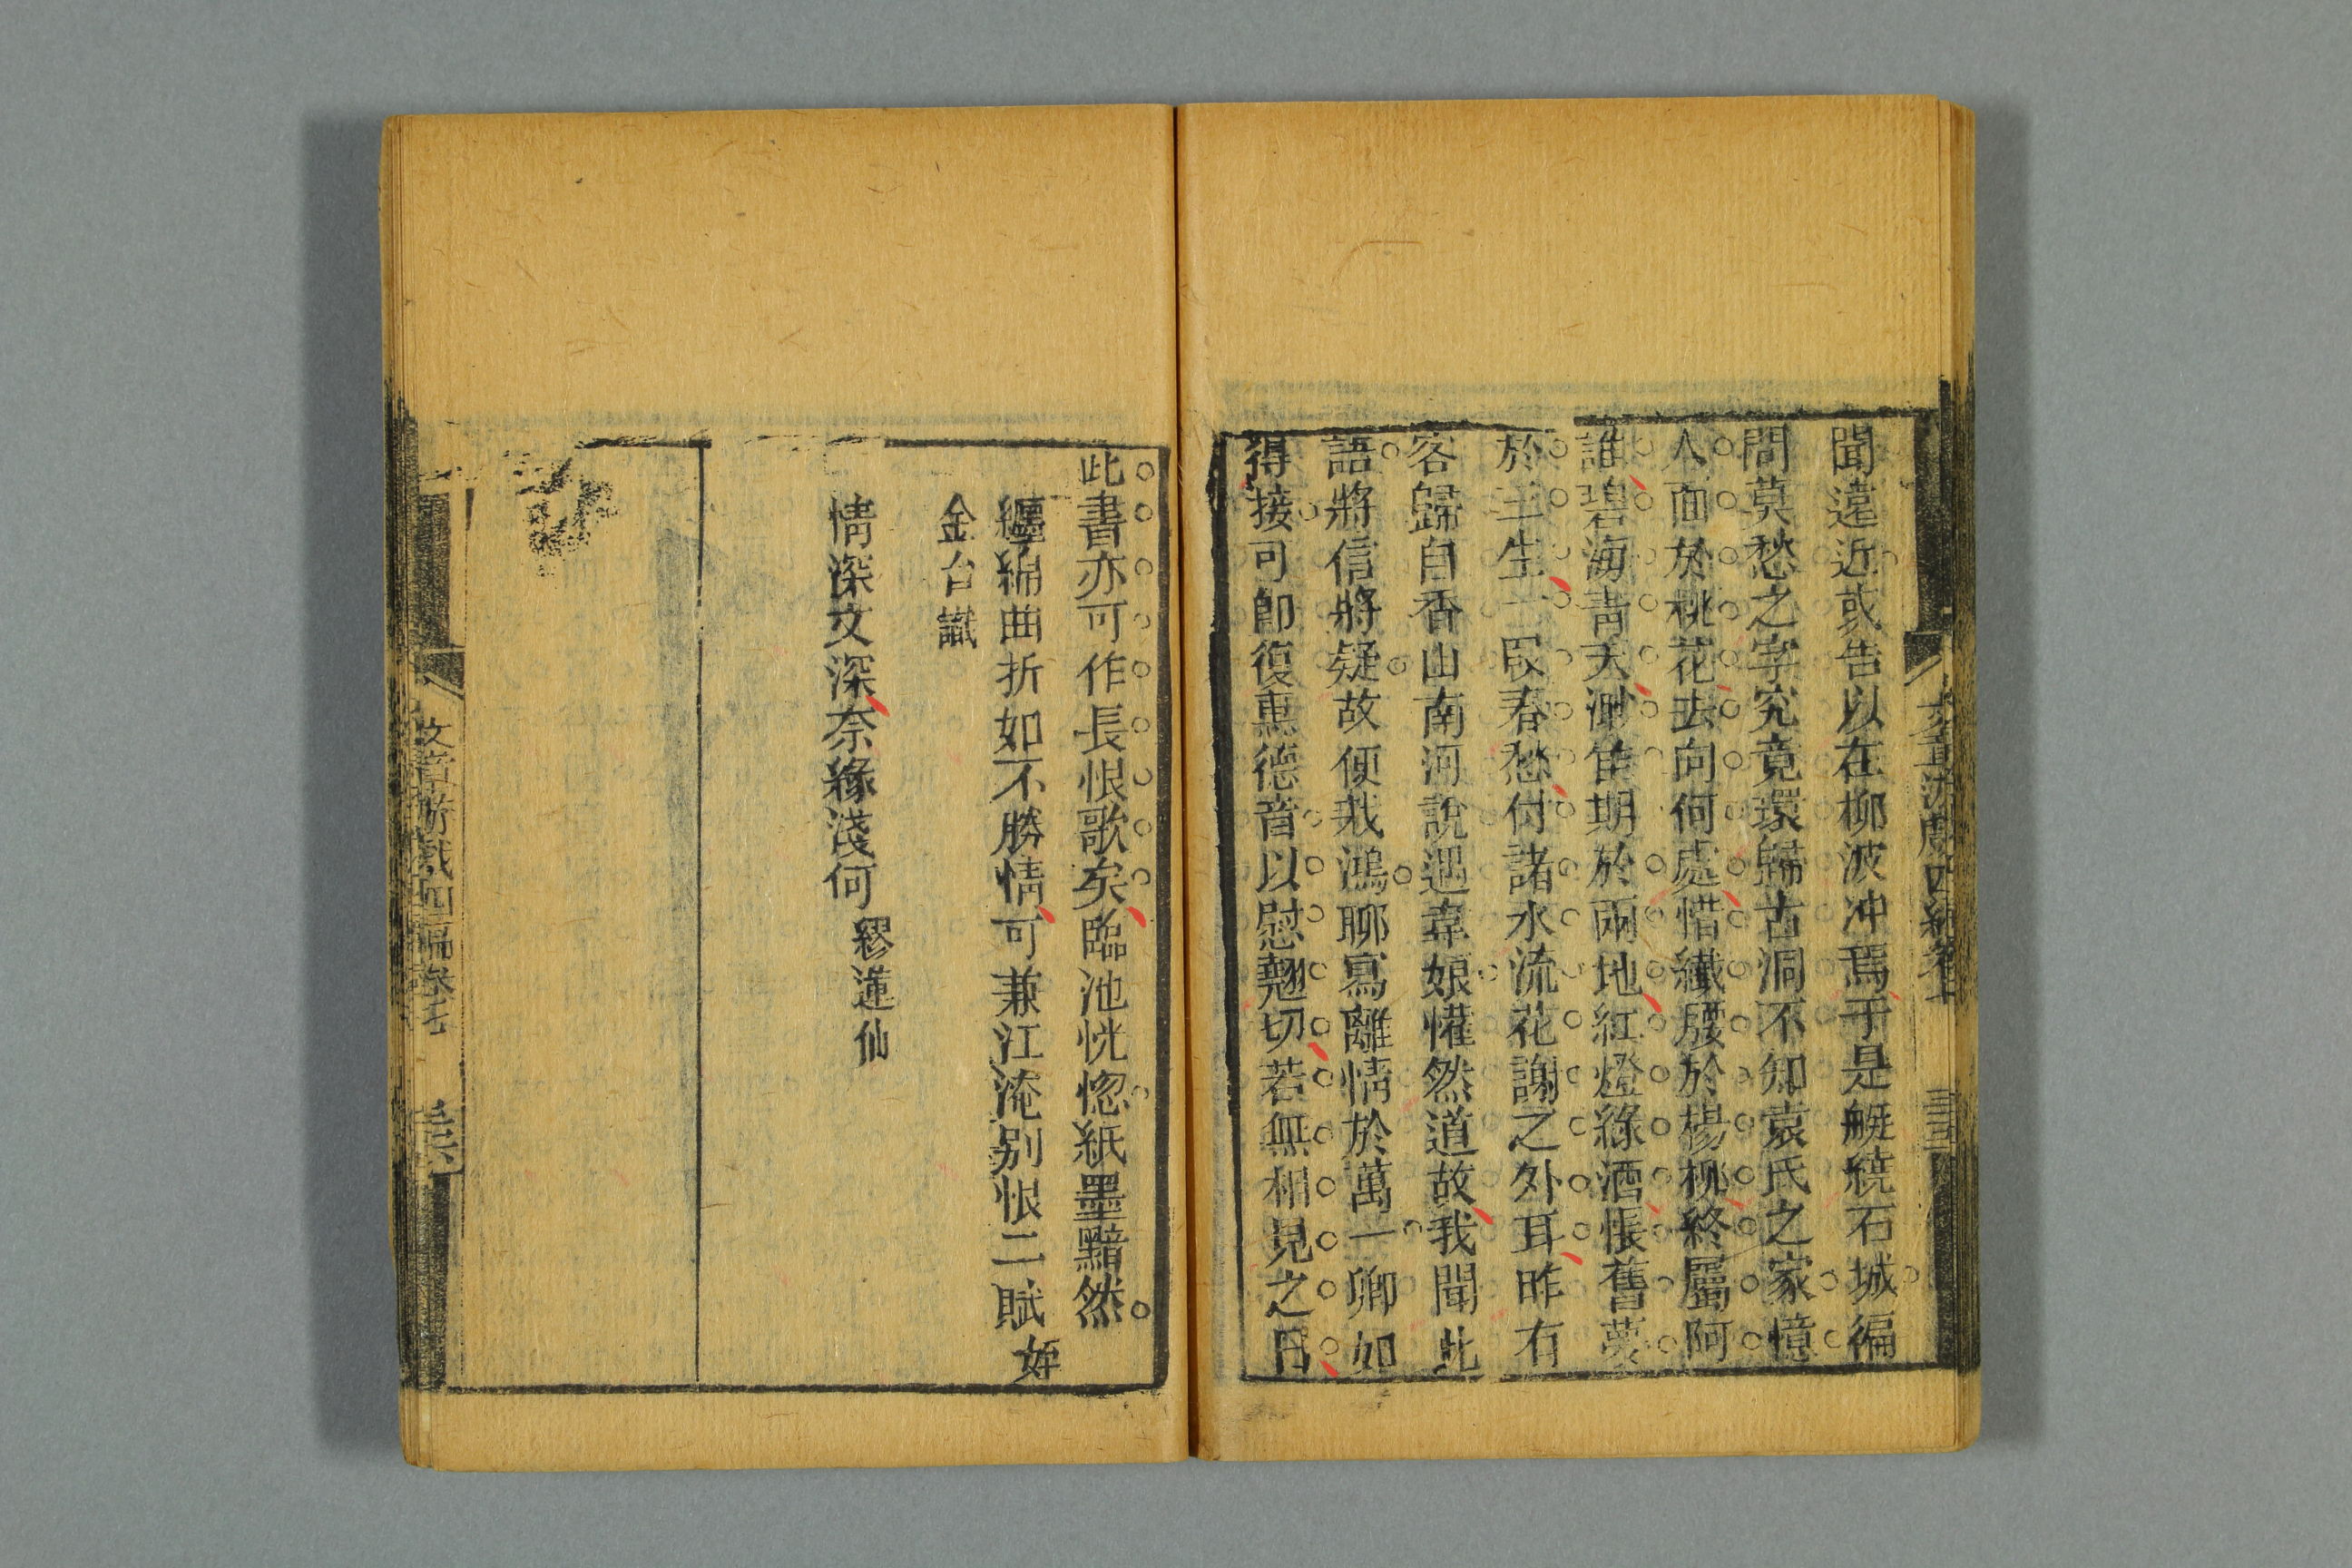 聞遠近或告以在柳波冲焉于是艇繞石城徧
問莫愁之字究竟環歸古洞不知袁氏之家憶
人面於桃花去向何處惜纖腰於楊柳終屬阿
誰碧海青天渺隹期於兩地紅燈綠酒悵舊夢
於三生一叚春愁付諸水流花謝之外耳昨有
客歸自香山南河說遇韋娘懽然道故我聞此
語將信將疑故便哉鴻聊寫離情於萬一卿如
得接可卽復惠德音以慰翹切若無相見之日
此書亦可作長恨歌矣臨池恍惚紙墨黯然
纏綿曲折如不勝情可兼江淹别恨二賦 姪
金台識
情深文深奈緣淺何 繆蓮仙
文章游戲四編卷七